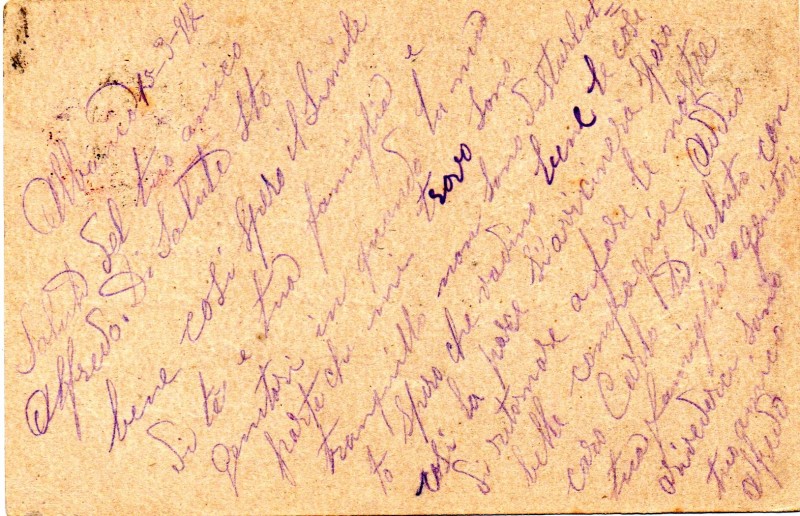 Albania 15-3-942
Saluti del tuo amico
Alfredo. Di Salute Sto
bene così spero il Simile
di te e tua famiglia e
genitori in quando la mia
parte che mi trovo sono
tranquillo non sono disturbat=
to spero che vadino bene le cose
così la pace si avvicinera spero
di ritornare a fare le nostre
belle compagnie Addio
caro Carlo Ti Saluto con
tua famiglia e genitori
arivederci sono
tuo amico
Alfredo